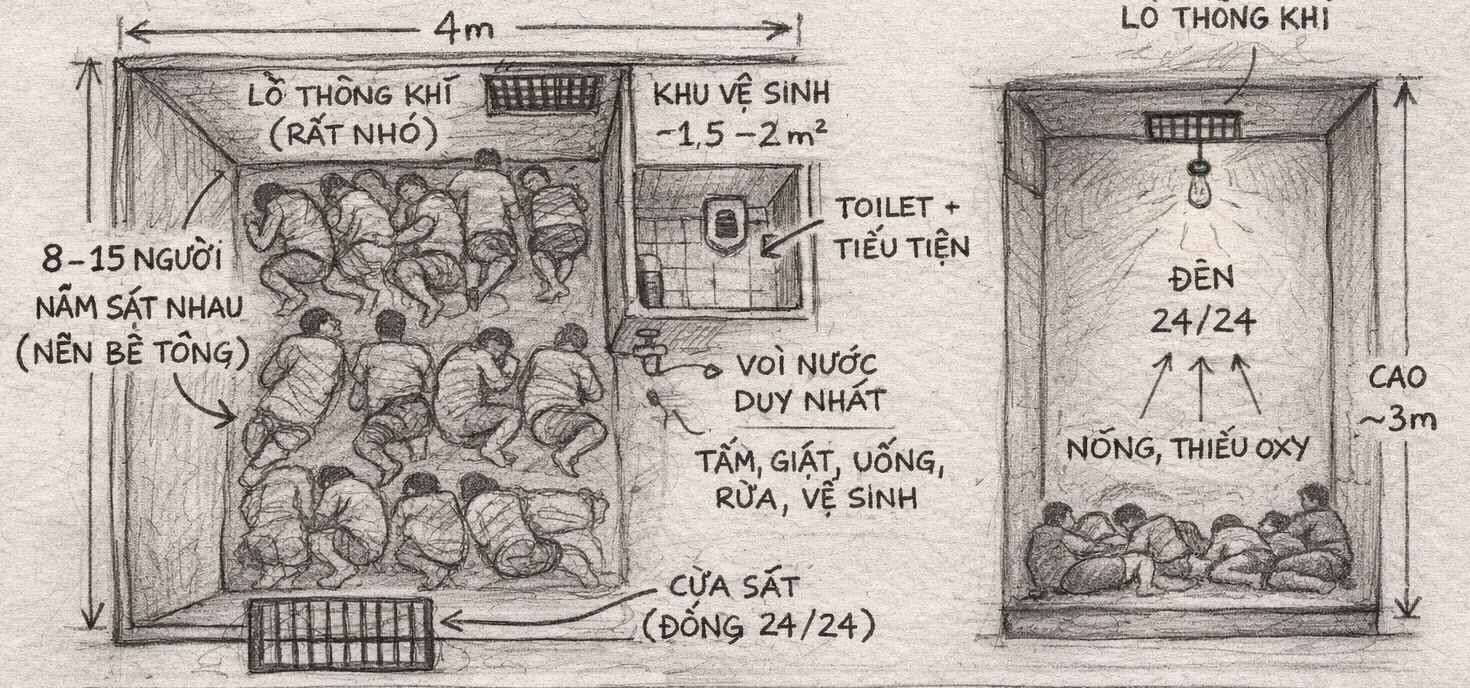 4m
LỖ THÔNG KHÍ
(RẤT NHỎ)
KHU VỆ SINH
~1,5 – 2 m²
TOILET +
TIỂU TIỆN
8–15 NGƯỜI
NẰM SÁT NHAU
(NỀN BÊ TÔNG)
VOÌ NƯỚC
DUY NHẤT
TẮM, GIẶT, UỐNG,
RỪA, VỆ SINH
CỪA SẮT
(ĐÓNG 24/24)
LỖ THÔNG KHÍ
ĐÈN
24/24
NÓNG, THIẾU OXY
CAO
~3m